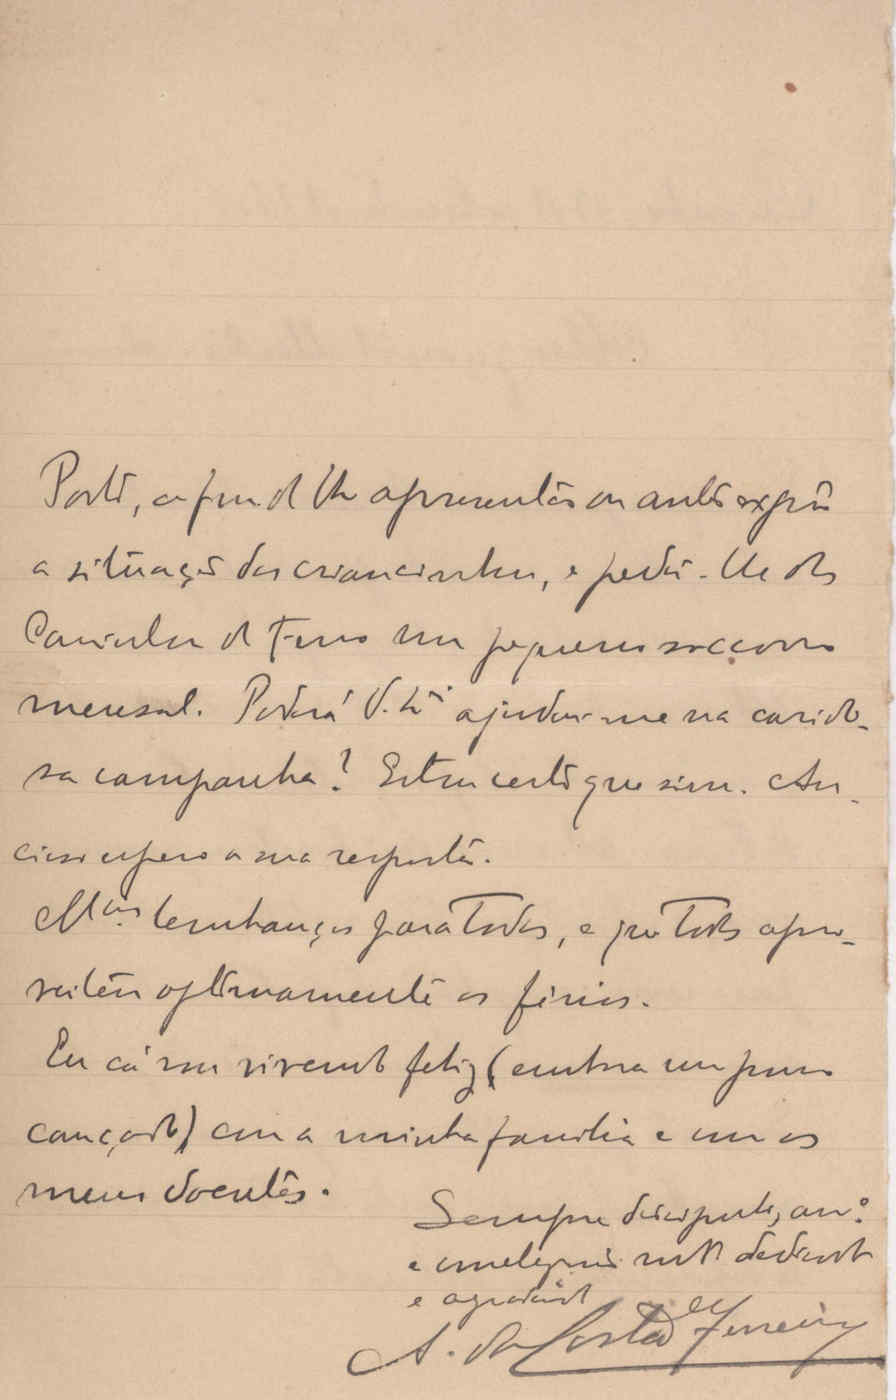 Porto, a fim de lhe apresentar ou antes expôr
a situação das criancinhas, e pedir-lhe dos
de um pequeno soccorro
mensal. Poderá V. ajudar-me na carido-
sa campanha? Estou certo que sim. An-
cioso espero a sua resposta.
M.as lembranças para todos, e que todos apro-
veitem optimamente as férias.
Eu cá vou vivendo feliz (embora um pouco
cançado) com a minha familia e com os
meus doentes.
Sempre discipulo, am.o
e collega mto dedicado
e agradecido
A. da Costa Ferreira